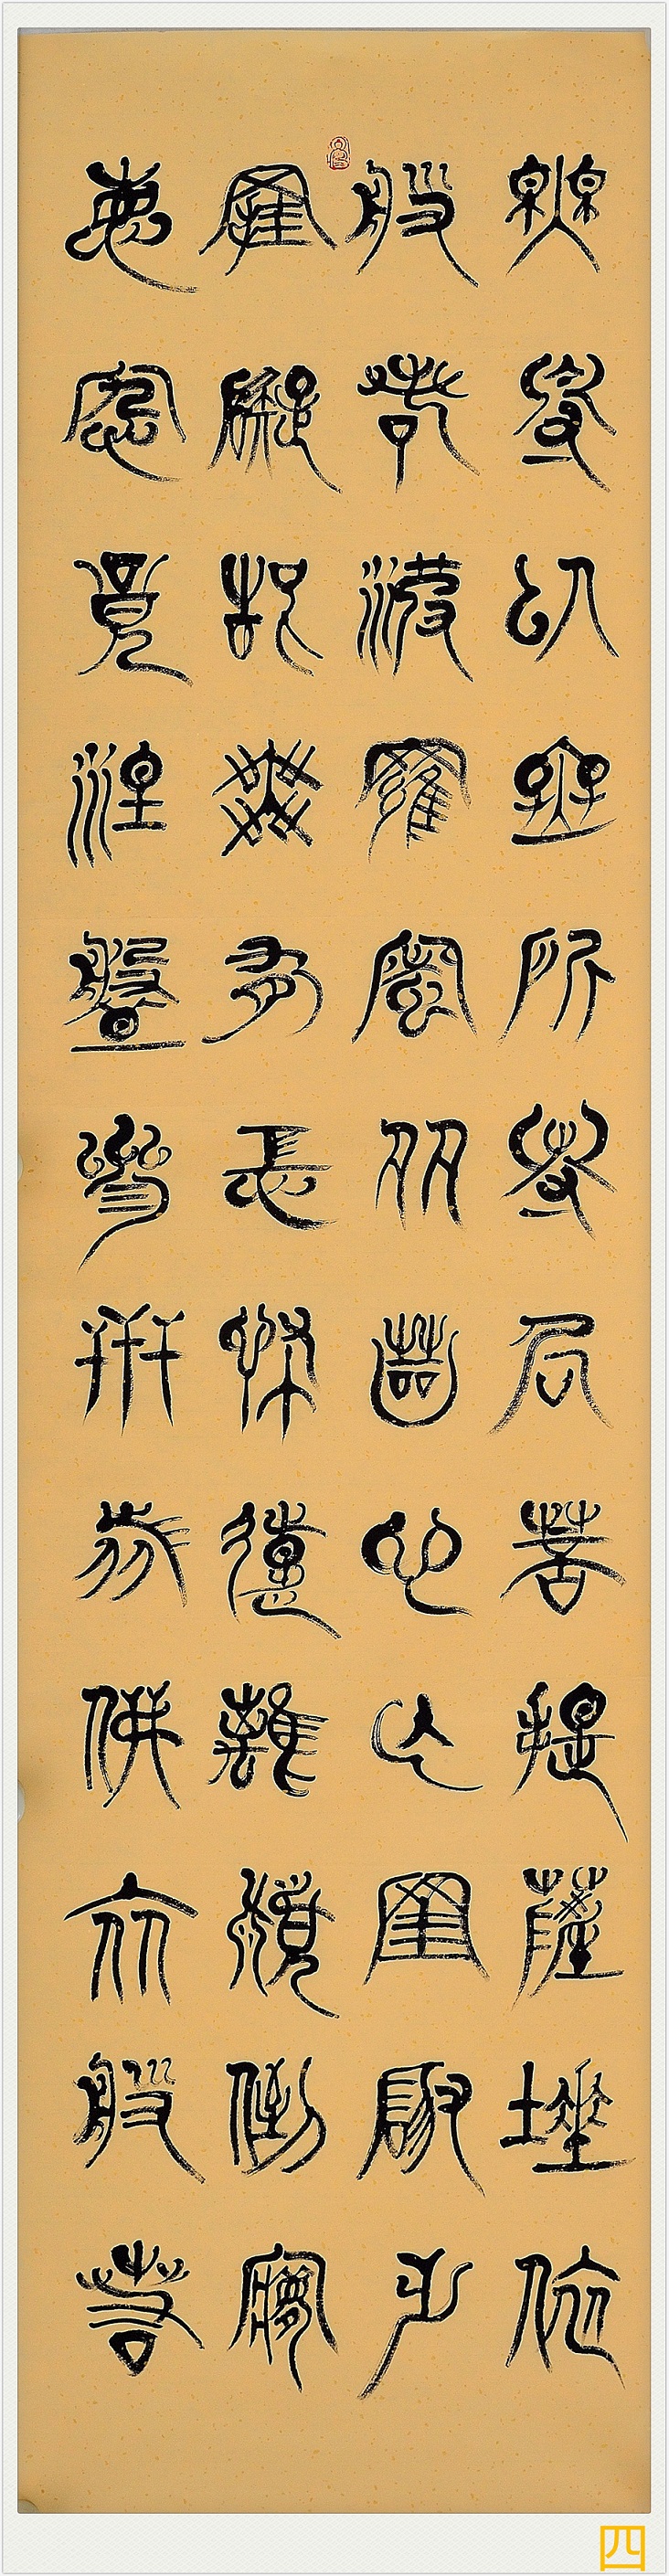 無得以無所得故菩提薩埵依
般若波羅蜜多故心無罣礙無
罣礙故無有恐怖遠離顛倒夢
想究竟涅槃三世諸佛依般若
四